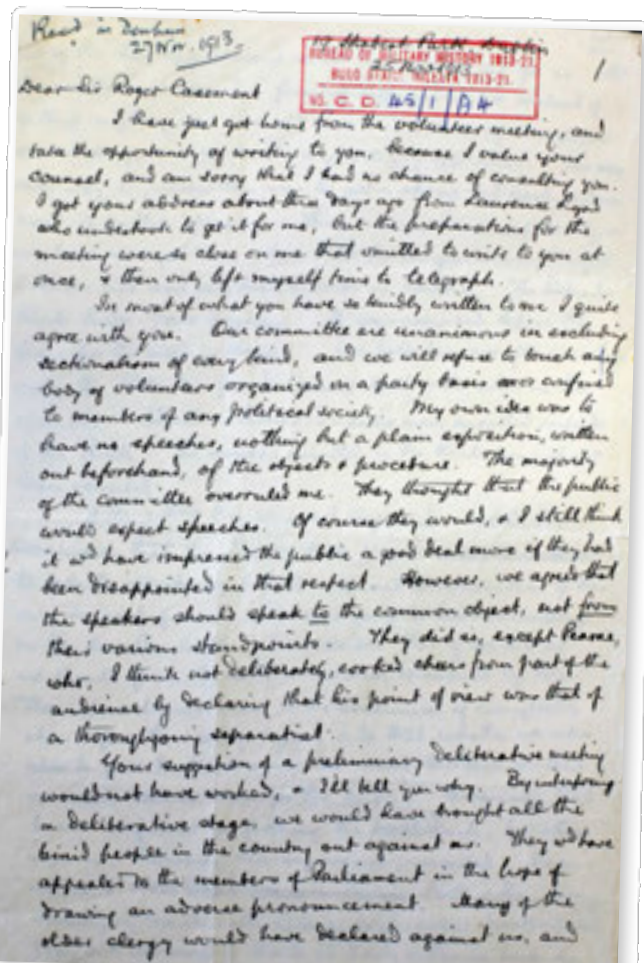 Recd in Denham
27 Nov. 1913.
19 Herbert Park Dublin
BUREAU OF MILITARY HISTORY 1913-21
BURO STAIRE MILEATA 1913-21
NO. C. D. 45/1/A4
1
Dear Sir Roger Casement
I have just got home from the volunteer meeting, and
take the opportunity of writing to you, because I value your
counsel, and am sorry that I had no chance of consulting you.
I got your address about three days ago from Laurence
who undertook to get it for me, but the preparations for the
meeting were so close on me that I omitted to write to you at
once, & then only left myself time to telegraph.
In most of what you have so kindly written to me I quite
agree with you. Our committee are unanimous in excluding
sectionalism of every kind, and we will refuse to touch any
body of volunteers organized on a party basis or confined
to members of any political society. My own idea was to
have no speeches, nothing but a plain exposition, written
out beforehand, of the objects & procedure. The majority
of the committee overruled me. They thought that the public
would expect speeches. Of course they would, & I still think
it wd have impressed the public a good deal more if they had
been disappointed in that respect. However, we agreed that
the speakers should speak to the common object, not from
their various standpoints. They did so, except Pearse,
who, I think not deliberately, evoked cheers from part of the
audience by declaring that his point of view was that of
a thoroughgoing separatist.
Your suggestion of a preliminary deliberative meeting
would not have worked, & I'll tell you why. By interposing
a deliberative stage, we would have brought all the
timid people in the country out against us. They wd have
appealed to the members of Parliament in the hope of
drawing an adverse pronouncement. Many of the
older clergy would have declared against us, and